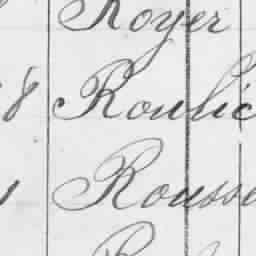 Royer
8 Roulic
Rousse